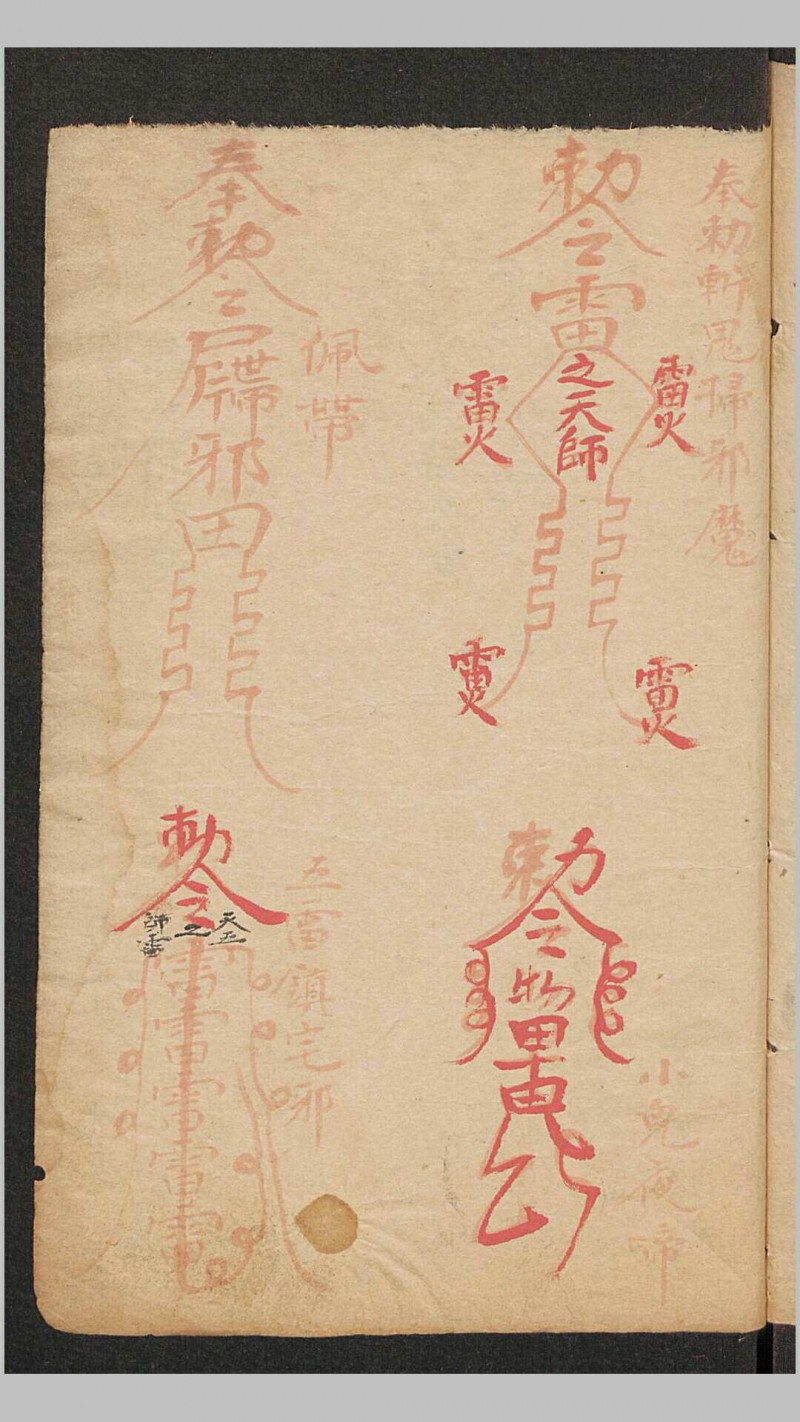 奉勅斬鬼掃邪魔
勅令
雷
之天師
雷火
雷火
雷火
雷火
佩帶
奉
勅令
邪
田
小兒夜啼
勅令
物
田
五雷鎮宅邪
勅令
天五
之
師雷
雷
雷
雷
雷
雷